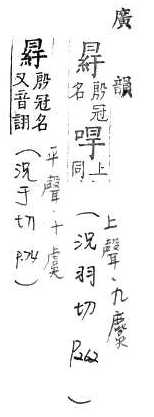 廣韻
冔殷冠名
上同
上聲·九麌
(況羽切 P262)
冔殷冠名又音詡
平聲·十虞
(況于切 P.74)